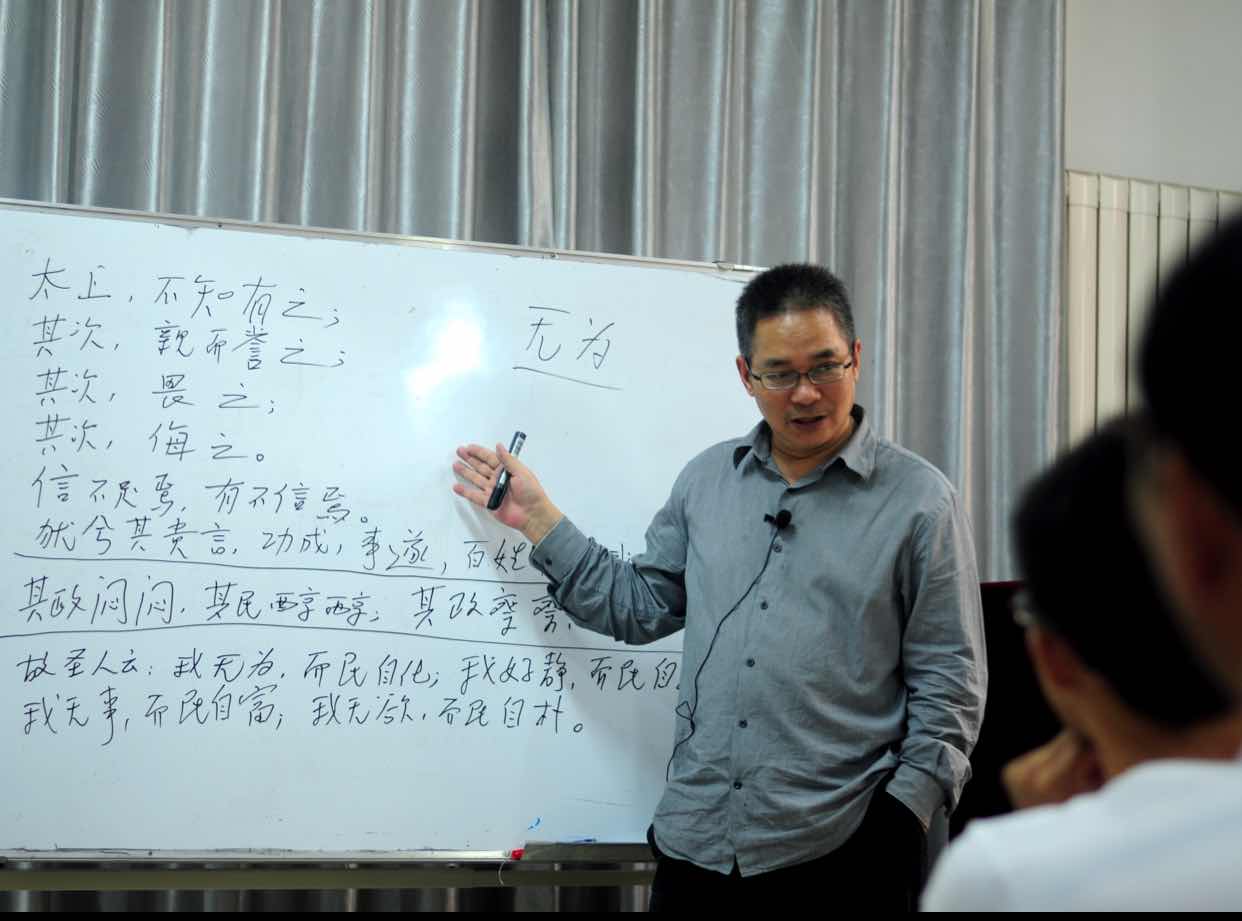 太上，不知有之；
其次，親而誉之；
其次，畏之；
其次，侮之。
信不足焉，有不信焉。
犹兮其贵言，功成，事遂，百姓
其政闷闷，其民醇醇；其政察察，
故圣人云：我无为，而民自化；我好静，而民自
我无事，而民自富；我无欲，而民自朴。
无为